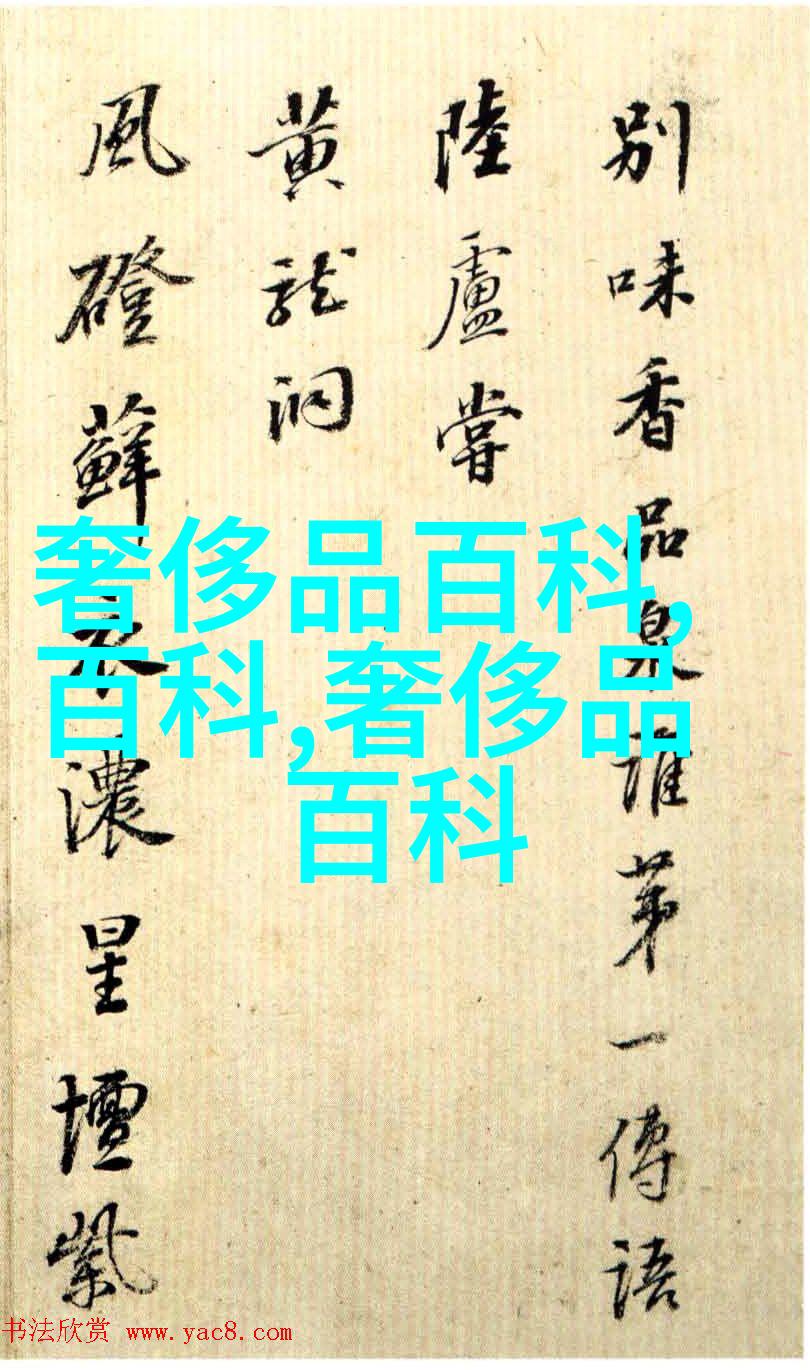 別味香品泉誰苐一傳語
陸盧嘗
黄龍洞
風磴蘚衣濃星壇紫
奢侈品百科,
百科,奢侈品
百科
书法欣赏 www.yac8.com